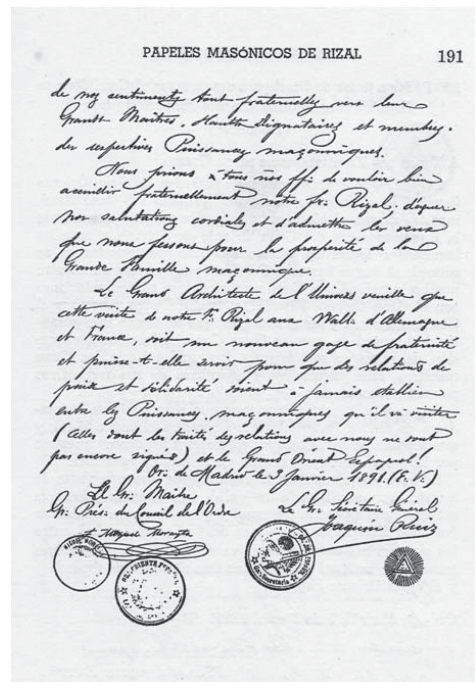 PAPELES MASÓNICOS DE RIZAL
191
de nos sentiments tout fraternels vers leurs
Grands Maîtres, Hauts Dignitaires et membres
des respectives Puissances maçonniques.
Nous prions à tous nos ff∴ de vouloir bien
accueillir fraternellement notre fr. Rizal, d'agréer
nos salutations cordiales et d'admettre les vœux
que nous faisons pour la prospérité de la
Grande Famille maçonnique.
Le Grand Architecte de l'Univers veuille que
cette visite de notre F. Rizal aux Vall. d'Allemagne
et France, soit un nouveau gage de fraternité
et puisse-t-elle servir pour que des relations de
paix et solidarité soient à jamais établies
entre les Puissances maçonniques qu'il va visiter
(celles dont les traités des relations avec nous ne sont
pas encore signés) et le Grand Orient Espagnol!
Or. de Madrid le 3 Janvier 1891 (E. V.)
Le Gr. Maître
Gr. Prés. du Conseil de l'Ordre
Le Gr. Secrétaire Général
Miguel Morayta
Joaquín Ruiz